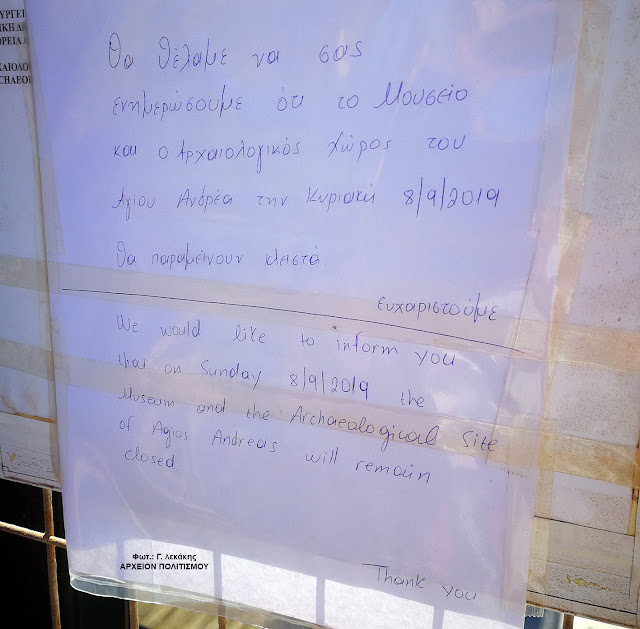 ΥΡΓΕΙ
ΙΚΗ Δ
ΟΡΕΙΑ
ΧΑΙΟΛΟ
CHAEOL
Θα θέλαμε να σας
ενημερώσουμε ότι το Μουσείο
και ο Αρχαιολογικός χώρος του
Αγίου Ανδρέα την Κυριακή 8/9/2019
θα παραμείνουν κλειστά
ευχαριστούμε
We would like to inform you
that on Sunday 8/9/2019 the
Museum and the Archaeological Site
of Agios Andreas will remain
closed
Thank you
Φωτ.: Γ. Λεκάκης
ΑΡΧΕΙΟΝ ΠΟΛΙΤΙΣΜΟΥ